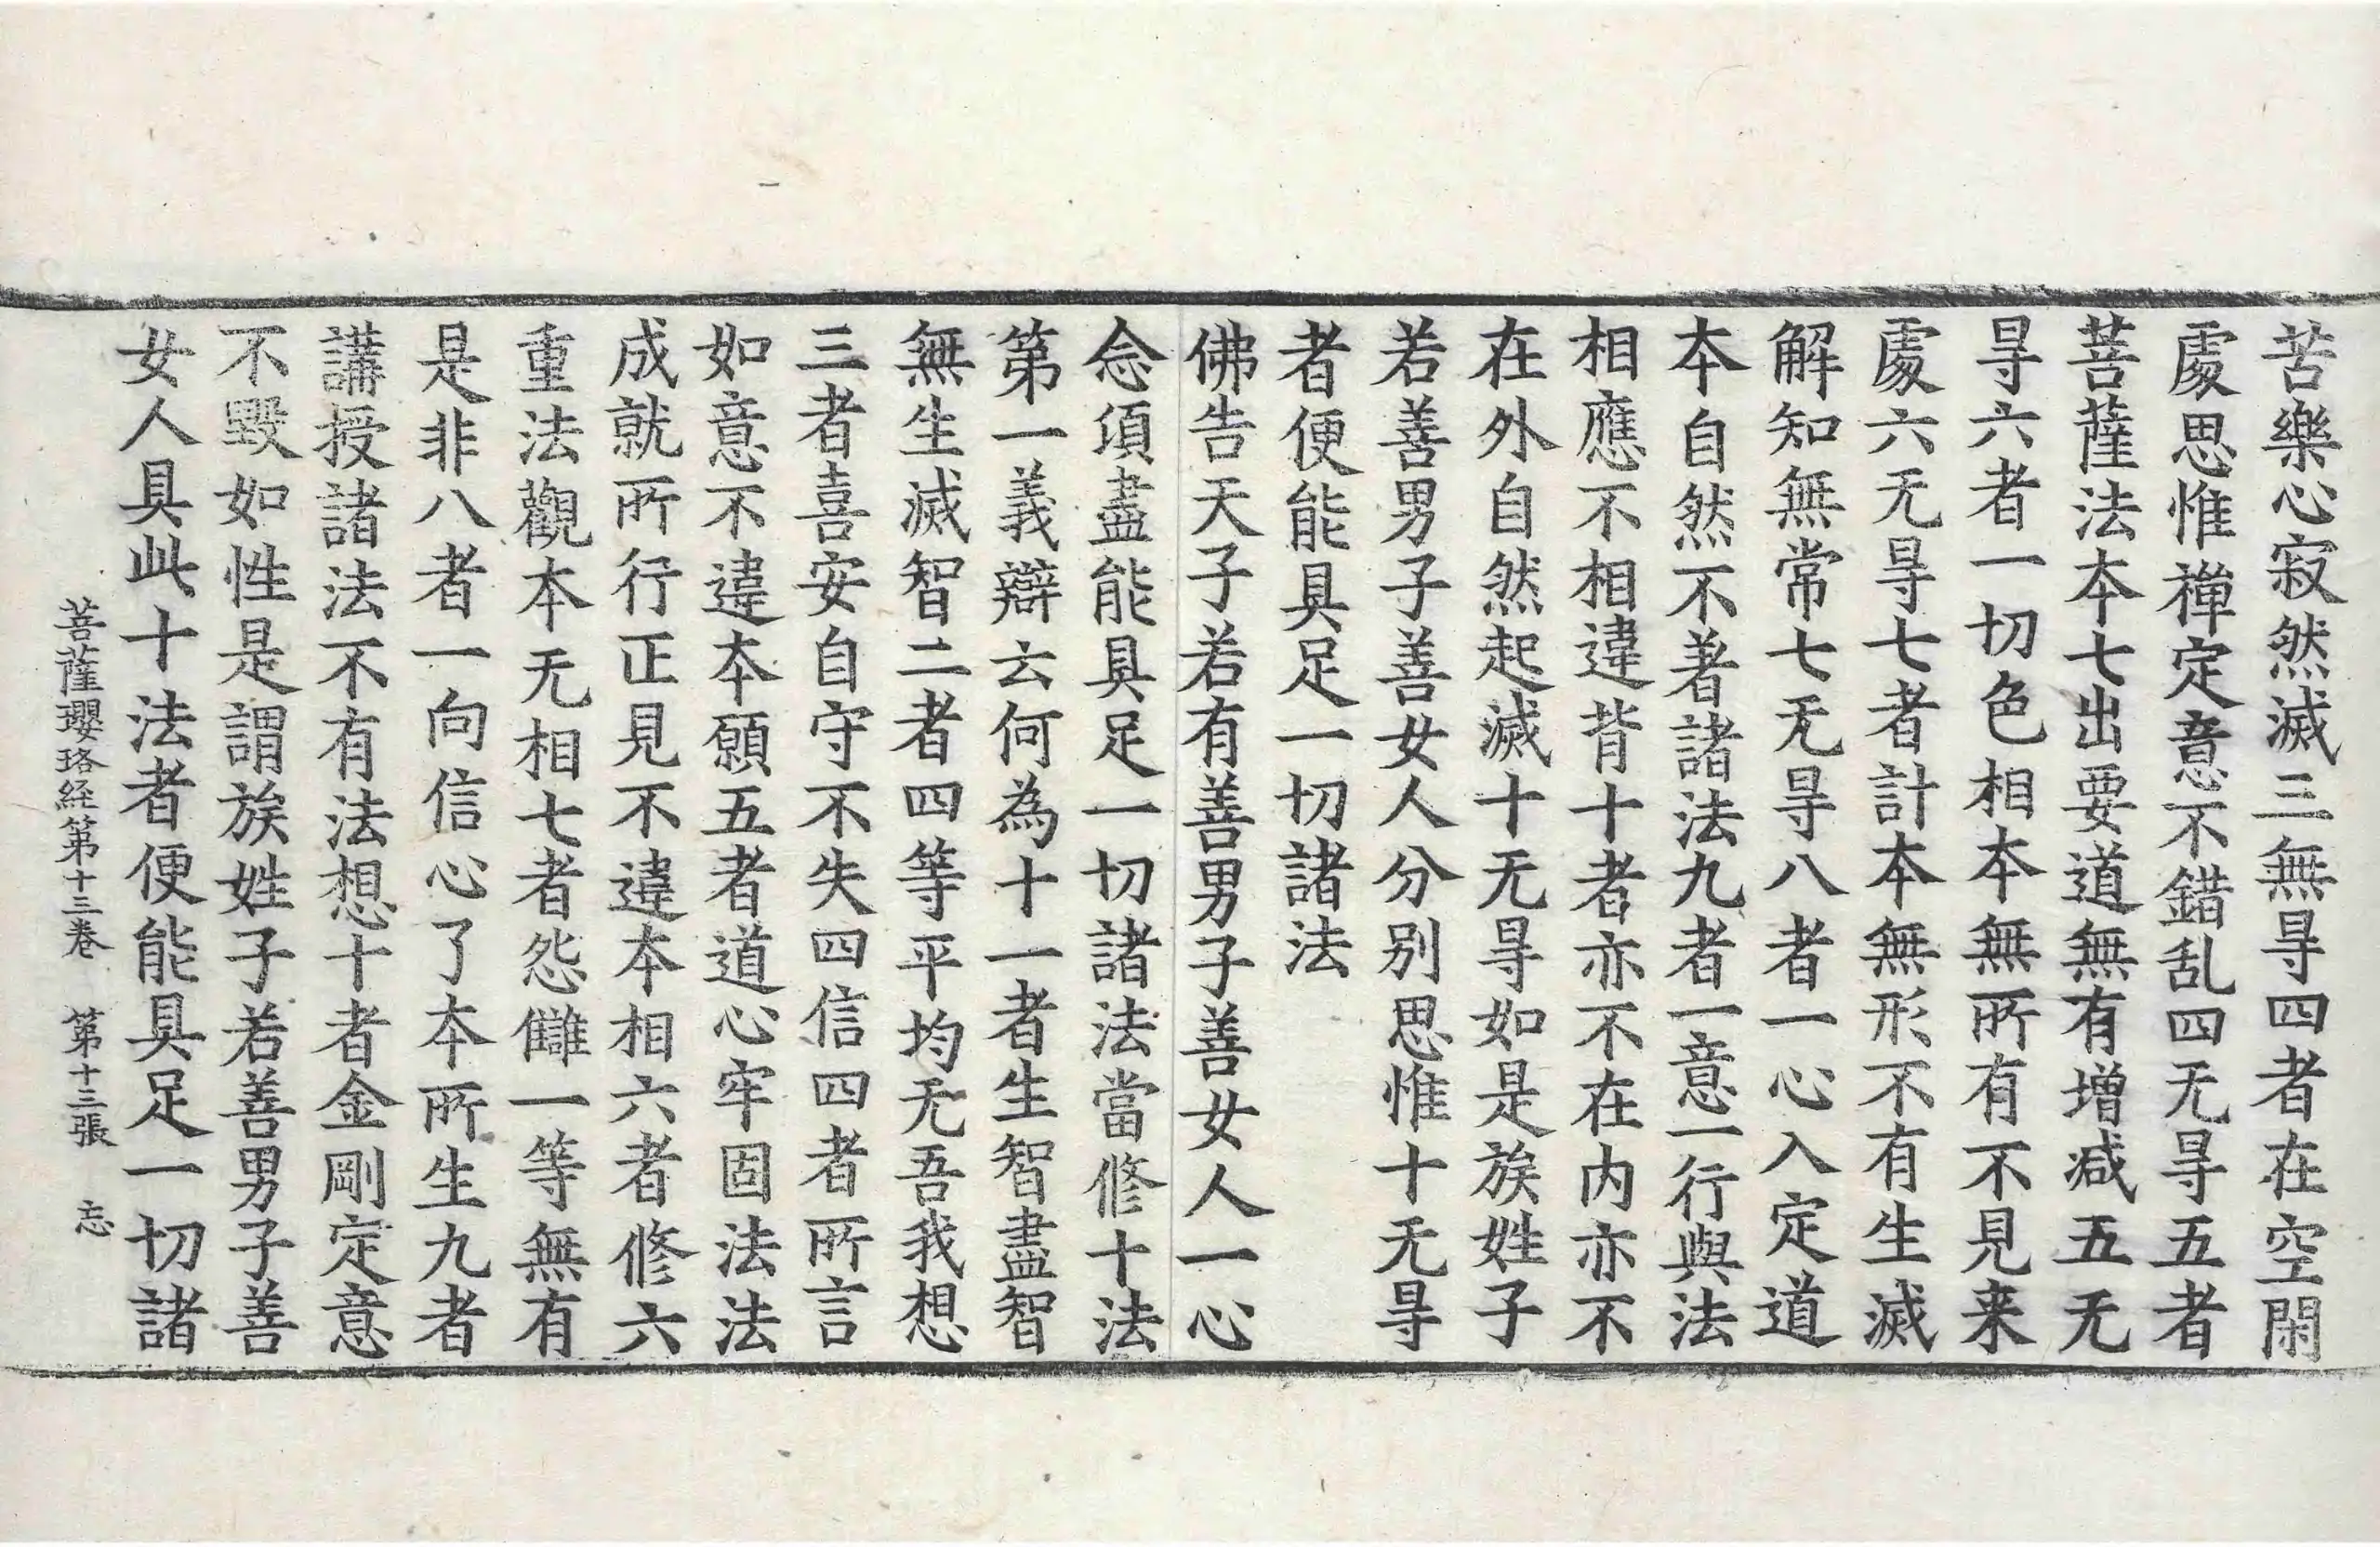 苦樂心寂然滅三無㝵四者在空閑
處思惟禪定意不錯乱四无㝵五者
菩薩法本七出要道無有增减五无
㝵六者一切色相本無所有不見来
處六无㝵七者計本無形不有生滅
解知無常七无㝵八者一心入定道
本自然不著諸法九者一意一行與法
相應不相違背十者亦不在内亦不
在外自然起滅十无㝵如是族姓子
若善男子善女人分别思惟十无㝵
者便能具足一切諸法
佛告天子若有善男子善女人一心
念湏盡能具足一切諸法當修十法
第一義辯云何為十一者生智盡智
無生滅智二者四等平均无吾我想
三者喜安自守不失四信四者所言
如意不違本願五者道心牢固法法
成就所行正見不違本相六者修六
重法觀本无相七者怨讎一等無有
是非八者一向信心了本所生九者
講授諸法不有法想十者金剛定意
不毀如性是謂族姓子若善男子善
女人具此十法者便能具足一切諸
菩薩瓔珞経第十三卷 第十三張 忘